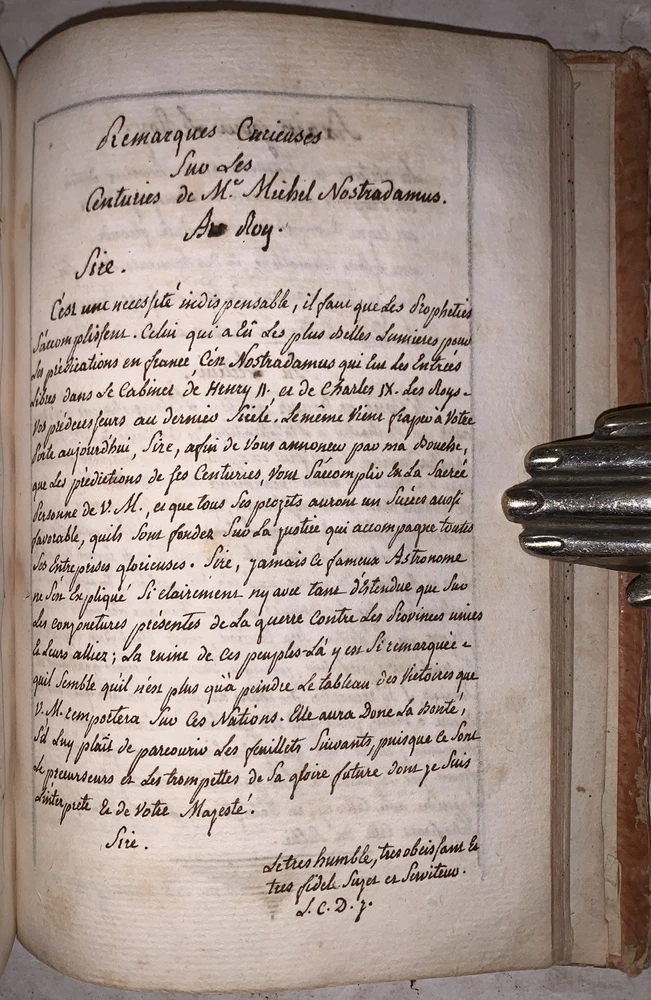 Remarques Curieuses
Sur Les
Centuries de Mre. Michel Nostradamus.
Au Roy.
Sire.
C'est une necessité indispensable, il faut que Les Propheties
S'accomplissent. Celui qui a Eû Les plus Belles Lumieres pour
Les prédications en france C'est Nostradamus qui Eut Les Entrées
Libres dans Le Cabinet de Henry II. et de Charles IX. Les Roys-
Vos prédecesseurs au dernier Siécle. Le même Vient fraper à Votre
Porte aujourd'hui, Sire, afin de Vous annoncer par ma Bouche,
que Les prédictions de ses Centuries, Vont S'accomplir En La Sacrée
Personne de V. M., et que tous Ses projets auront un Succes aussi
favorable, quils Sont fondez Sur La justice qui accompagne toutes
Ses Entreprises glorieuses. Sire, jamais Ce fameux Astronome
ne S'en Expliqué Si clairement ny avec tant d'Etendue que Sur
Les conjonctures présentes de La guerre Contre Les Provinces unies
Et Leurs alliez; La ruine de Ces peuples-Là y est Si remarquée-
quil Semble qu'il n'est plus qu'à peindre Le tableau des Victoires que
V. M. remportera Sur Ces Nations. Elle aura Donc La Bonté,
S'il Luy plaît de parcourir Les feuillets Suivants, puisque Ce Sont
Le precurseurs et Les trompettes de Sa gloire future dont je Suis
L'interprète Et de Votre Magesté.
Sire.
Le tres humble, tres obeissant Et
tres fidele Sujet et Serviteur.
L. C. D. J.